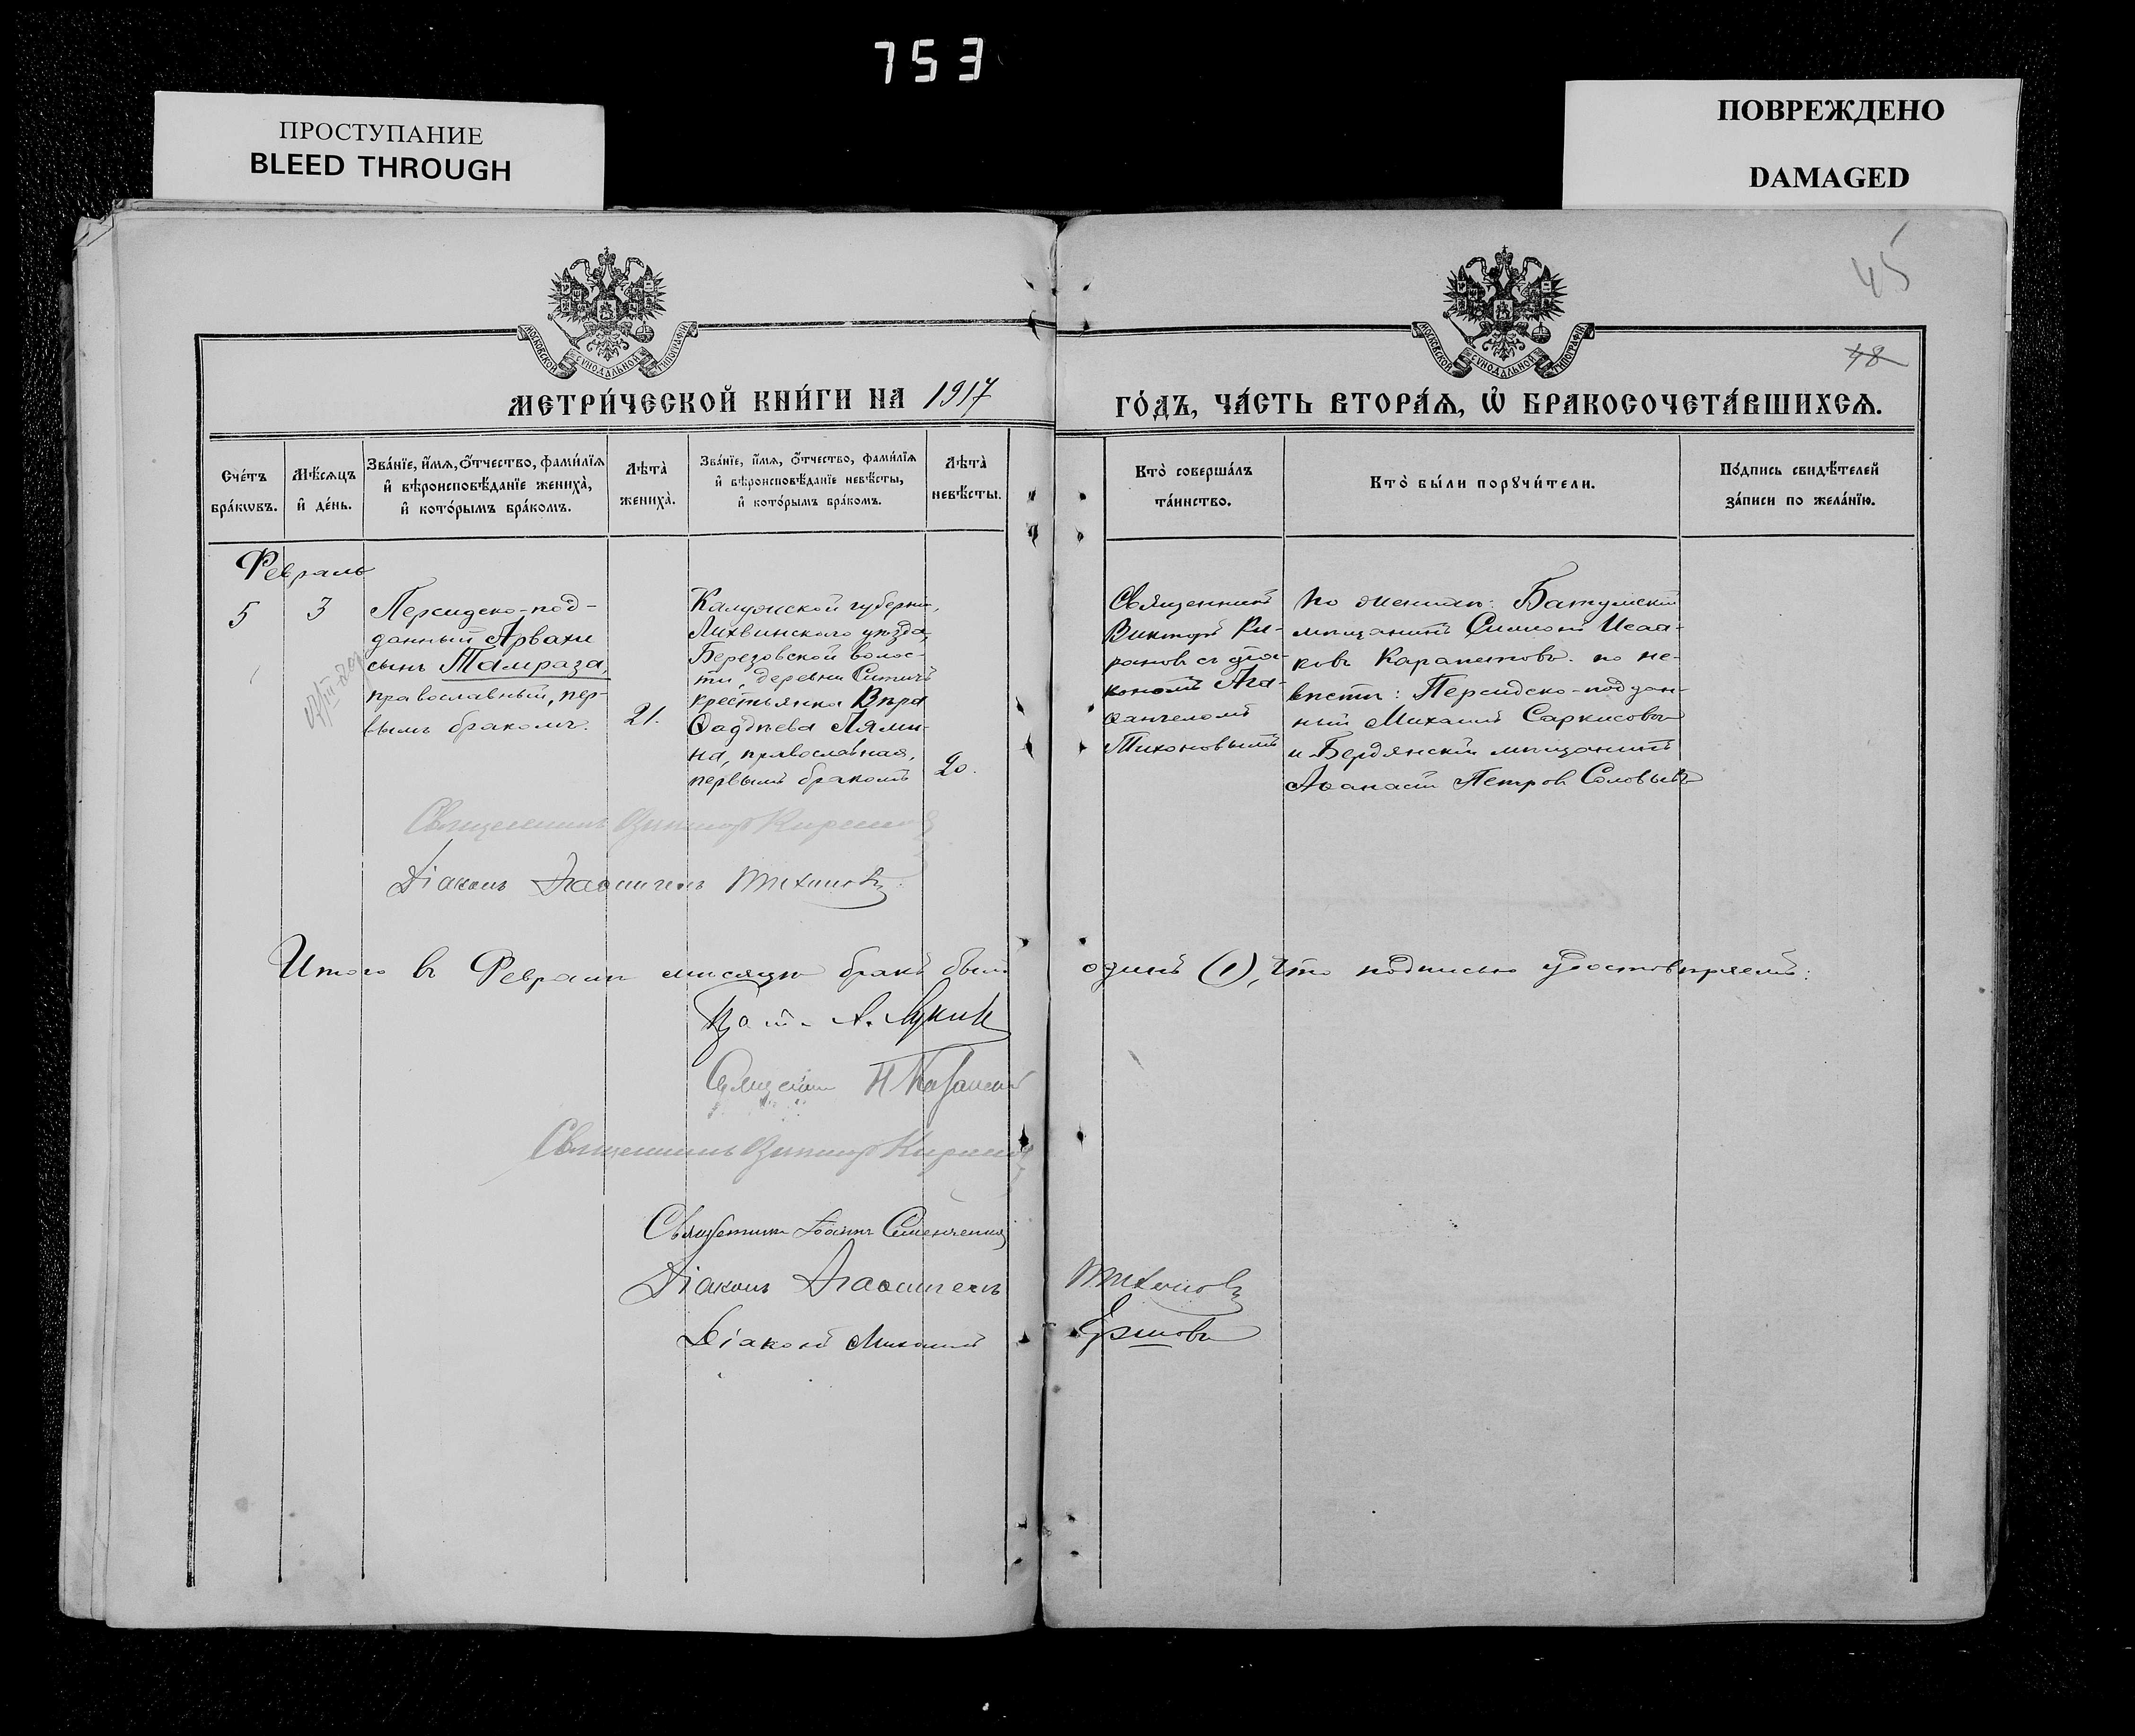 753
ПРОСТУПАНИЕ
BLEED THROUGH
ПОВРЕЖДЕНО
DAMAGED
45
48
МОСКОВСКОЙ СѴНОДАЛЬНОЙ ТИПОГРАФІИ
МОСКОВСКОЙ СѴНОДАЛЬНОЙ ТИПОГРАФІИ
МЕТРИ́ЧЕСКОЙ КНИ́ГИ НА 1917
ГО́ДЪ, ЧА́СТЬ ВТОРА́Ѧ, Ѽ БРАКОСОЧЕТА́ВШИХСѦ.
Сче́тъ
бра́кѡвъ.
Мѣ́сѧцъ
и҆ де́нь.
Зва́нїе, и҆́мѧ, ѻ҆́тчество, фами́лїѧ
и҆ вѣроисповѣ́данїе жениха̀,
и҆ кото́рымъ бра́комъ.
Лѣта̀
жениха̀.
Зва́нїе, и҆́мѧ, ѻ҆́тчество, фами́лїѧ
и҆ вѣроисповѣ́данїе невѣ́сты,
и҆ кото́рымъ бра́комъ.
Лѣта̀
невѣ́сты.
Кто̀ соверша́лъ
та́инство.
Кто̀ бы́ли порꙋчи́тели.
По́дпись свидѣ́телей
за́писи по жела́нїю.
Февраль
5
3
Персидско-под-
данный Арвахи
сынъ Тамраза,
православный, пер-
вымъ бракомъ.
21.
Калужской губерніи,
Лихвинскаго уѣзда,
Березовской волос-
ти, деревни
крестьянка Вѣра
Ѳаддѣева Лями-
на, православная,
первымъ бракомъ
20.
Священникъ
Викторъ Ки-
рановъ съ діа-
кономъ Ага-
ѳангеломъ
Тихоновымъ
по женихѣ: Батумскій
мѣщанинъ Симонъ Исаа-
ковъ Карапетовъ. по не-
вѣстѣ: Персидско-поддан-
ный Михаилъ Саркисовъ
и Бердянскій мѣщанинъ
Аѳанасій Петровъ Соловьевъ
Священникъ Викторъ Кирановъ
Діаконъ Агаѳангелъ Тихоновъ.
Итого въ Февралѣ мѣсяцѣ бракъ былъ одинъ (1), что подписью удостовѣряемъ:
Священникъ Викторъ Кирановъ
Священникъ Іоаннъ
Діаконъ Агаѳангелъ Тихоновъ
Діаконъ Михаилъ Ершовъ